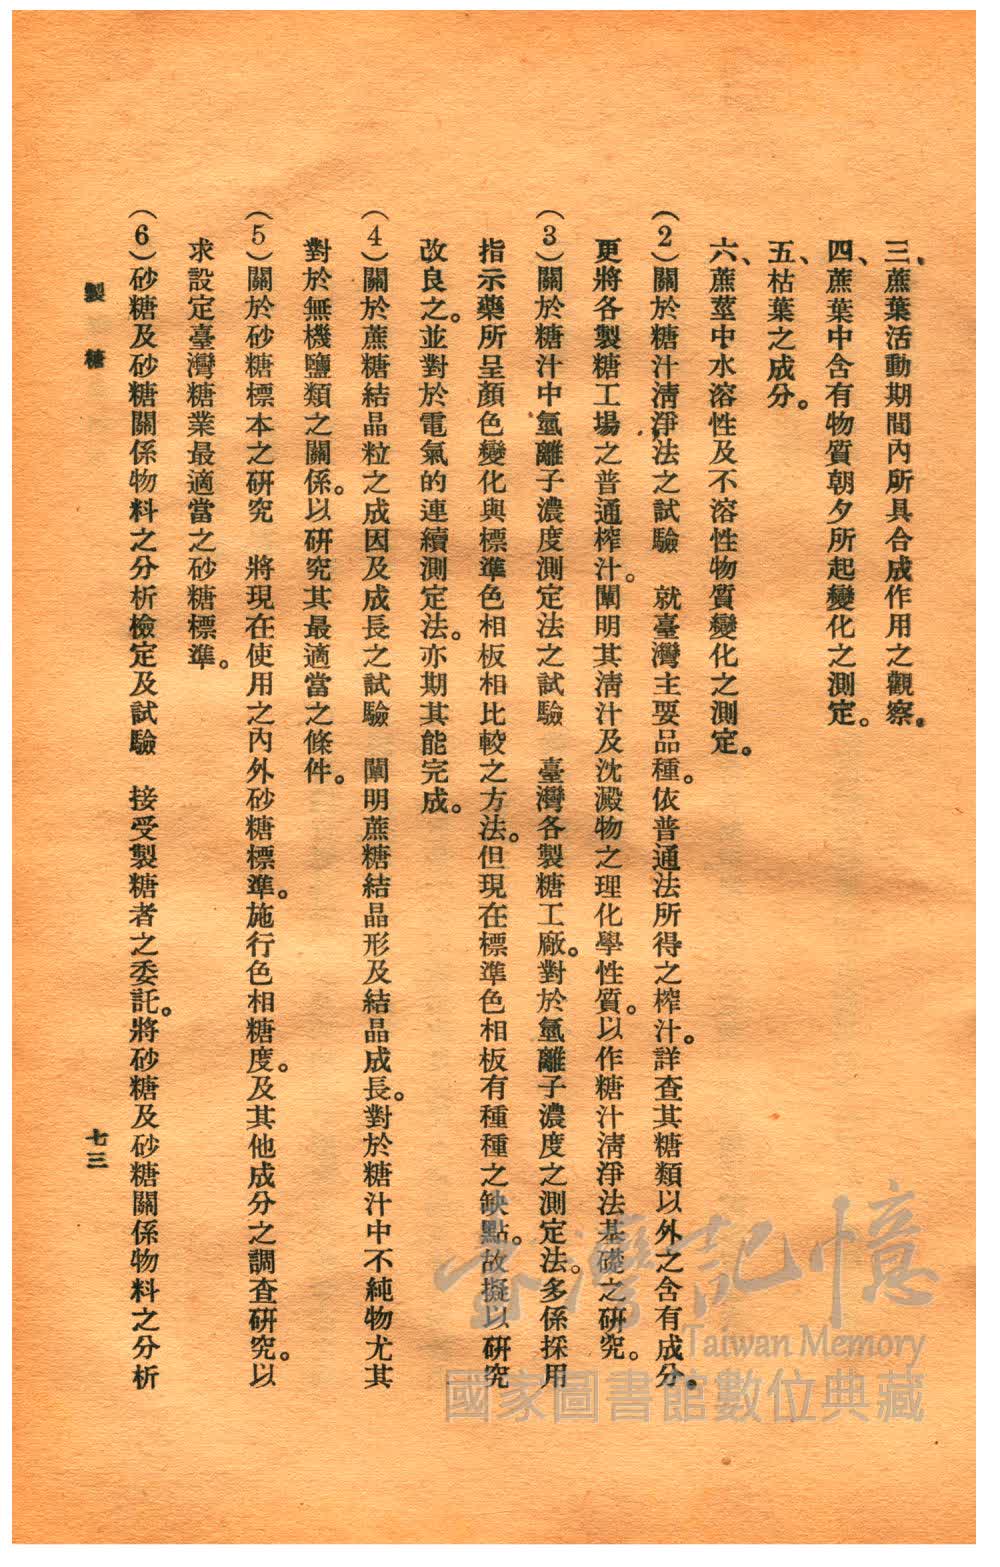 三、蔗葉活動期間內所具合成作用之觀察。
四、蔗葉中含有物質朝夕所起變化之測定。
五、枯葉之成分。
六、蔗莖中水溶性及不溶性物質變化之測定。
(2)關於糖汁清淨法之試驗　就臺灣主要品種。依普通法所得之榨汁。詳查其糖類以外之含有成分。
更將各製糖工場之普通榨汁。闡明其清汁及沈澱物之理化學性質。以作糖汁清淨法基礎之研究。
(3)關於糖汁中氫離子濃度測定法之試驗　臺灣各製糖工廠。對於氫離子濃度之測定法。多係採用
指示藥所呈顏色變化與標準色相板相比較之方法。但現在標準色相板有種種之缺點。故擬以研究
改良之。並對於電氣的連續測定法。亦期其能完成。
(4)關於蔗糖結晶粒之成因及成長之試驗　闡明蔗糖結晶形及結晶成長。對於糖汁中不純物尤其
對於無機鹽類之關係。以研究其最適當之條件。
(5)關於砂糖標本之研究　將現在使用之內外砂糖標準。施行色相糖度。及其他成分之調查研究。以
求設定臺灣糖業最適當之砂糖標準。
(6)砂糖及砂糖關係物料之分析檢定及試驗　接受製糖者之委託。將砂糖及砂糖關係物料之分析
製糖
七三
臺灣記憶
Taiwan Memory
國家圖書館數位典藏